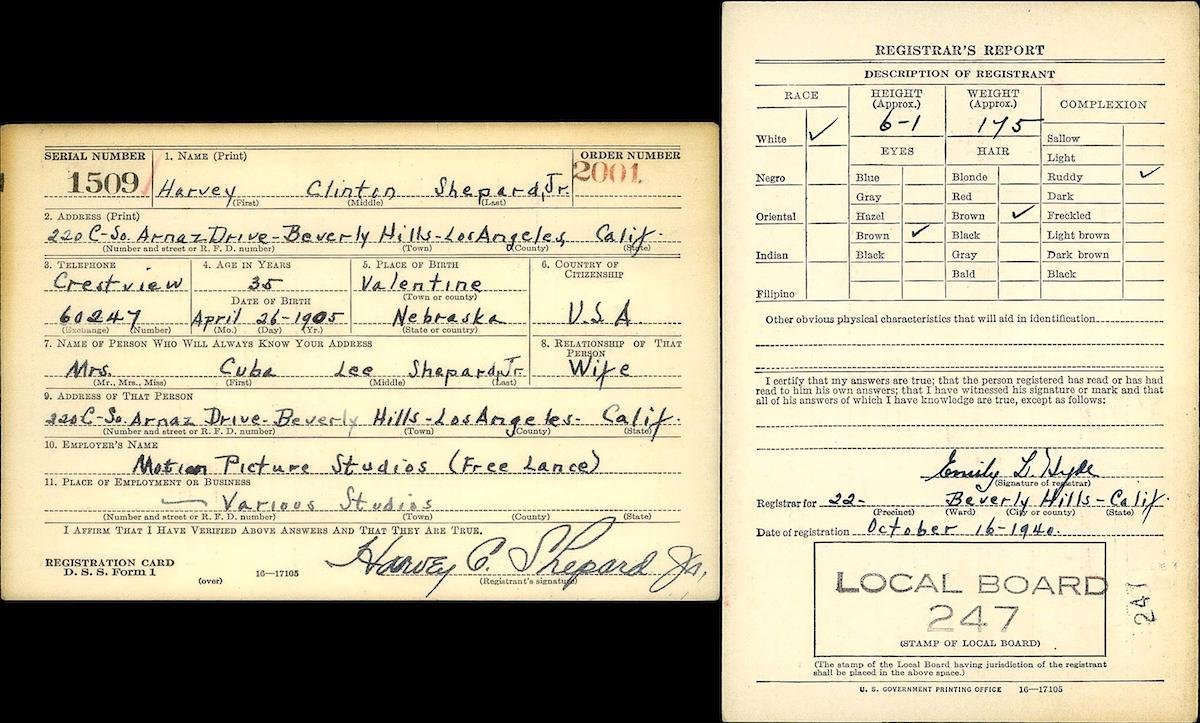 SERIAL NUMBER
1509
1. NAME (Print)
Harvey Clinton Shepard, Jr.
(First) (Middle) (Last)
ORDER NUMBER
2001
2. ADDRESS (Print)
220 C-So. Arnaz Drive-Beverly Hills-Los Angeles, Calif.
(Number and street or R. F. D. number) (Town) (County) (State)
3. TELEPHONE
Crestview
60247
(Exchange) (Number)
4. AGE IN YEARS
35
DATE OF BIRTH
April 26-1905
(Mo.) (Day) (Yr.)
5. PLACE OF BIRTH
Valentine
(Town or county)
Nebraska
(State or country)
6. COUNTRY OF
CITIZENSHIP
U.S.A.
7. NAME OF PERSON WHO WILL ALWAYS KNOW YOUR ADDRESS
Mrs. Cuba Lee Shepard, Jr.
(Mr., Mrs., Miss) (First) (Middle) (Last)
8. RELATIONSHIP OF THAT
PERSON
Wife
9. ADDRESS OF THAT PERSON
220 C-So. Arnaz Drive-Beverly Hills-Los Angeles-Calif.
(Number and street or R. F. D. number) (Town) (County) (State)
10. EMPLOYER'S NAME
Motion Picture Studios (Free Lance)
11. PLACE OF EMPLOYMENT OR BUSINESS
— Various Studios
(Number and street or R. F. D. number) (Town) (County) (State)
I AFFIRM THAT I HAVE VERIFIED ABOVE ANSWERS AND THAT THEY ARE TRUE.
Harvey C. Shepard Jr.
(Registrant's signature)
REGISTRATION CARD
D. S. S. Form 1
(over)
16—17105
REGISTRAR'S REPORT
DESCRIPTION OF REGISTRANT
RACE
White ✓
Negro
Oriental
Indian
Filipino
HEIGHT
(Approx.)
6-1
WEIGHT
(Approx.)
175
EYES
Blue
Gray
Hazel
Brown ✓
Black
HAIR
Blonde
Red
Brown ✓
Black
Gray
Bald
COMPLEXION
Sallow
Light
Ruddy ✓
Dark
Freckled
Light brown
Dark brown
Black
Other obvious physical characteristics that will aid in identification
I certify that my answers are true; that the person registered has read or has had
read to him his own answers; that I have witnessed his signature or mark and that
all of his answers of which I have knowledge are true, except as follows:
Emily L. Hyde
(Signature of registrar)
Registrar for 22- Beverly Hills-Calif.
(Precinct) (Ward) (City or county) (State)
Date of registration October 16-1940.
LOCAL BOARD
247
(STAMP OF LOCAL BOARD)
247
(The stamp of the Local Board having jurisdiction of the registrant
shall be placed in the above space.)
U. S. GOVERNMENT PRINTING OFFICE 16—17105